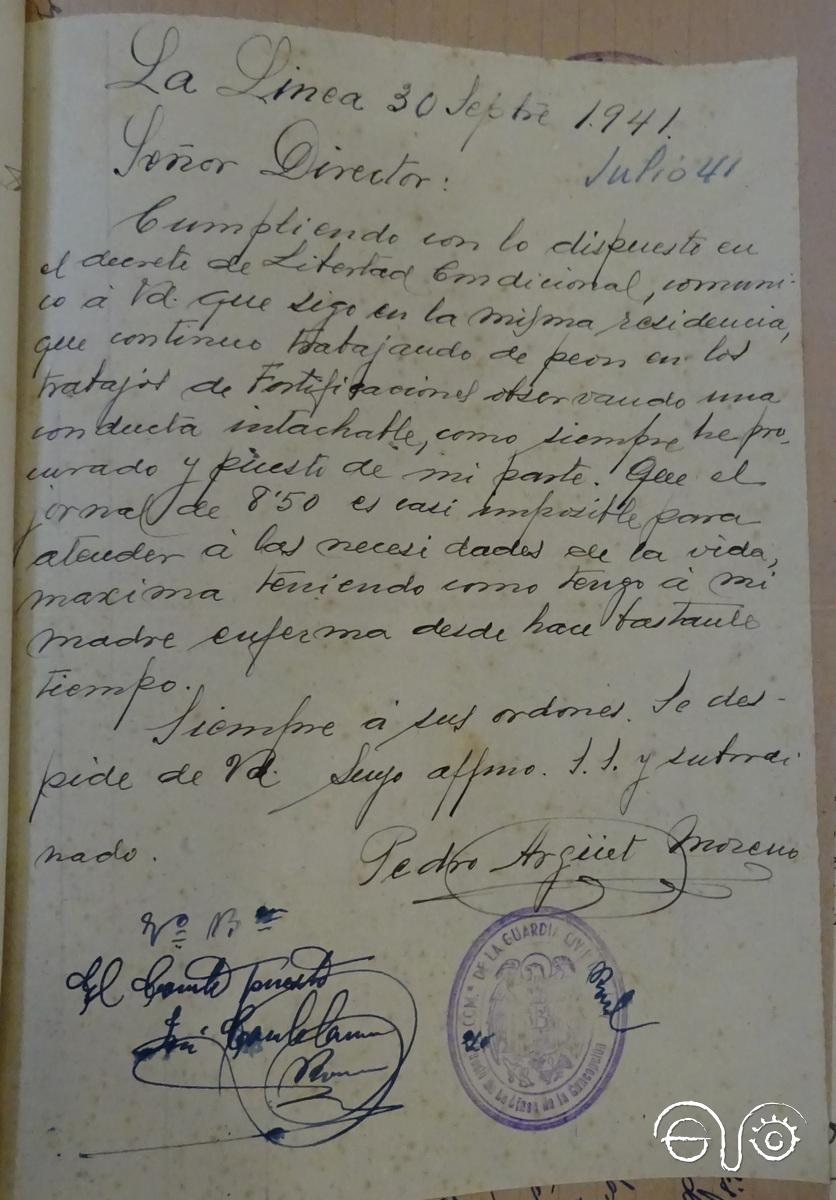 La Linea 30 Septre 1.941.
Julio 41
Señor Director:
Cumpliendo con lo dispuesto en
el decreto de Libertad Condicional, comuni-
co á Vd. que sigo en la misma residencia,
que continuo trabajando de peon en los
trabajos de Fortificaciones observando una
conducta intachable, como siempre he pro-
curado y puesto de mi parte. Que el
jornal de 8'50 es casi imposible para
atender á las necesidades de la vida,
maxima teniendo como tengo á mi
madre enferma desde hace bastante
tiempo.
Siempre á sus ordenes. Se des-
pide de Vd. Suyo affmo. S.S. y subordi
nado.
Pedro Argüet Moreno
Vº Bº
El Comte puesto
José
COM.ª DE LA GUARDIA CIVIL
de La Linea de la Concepción